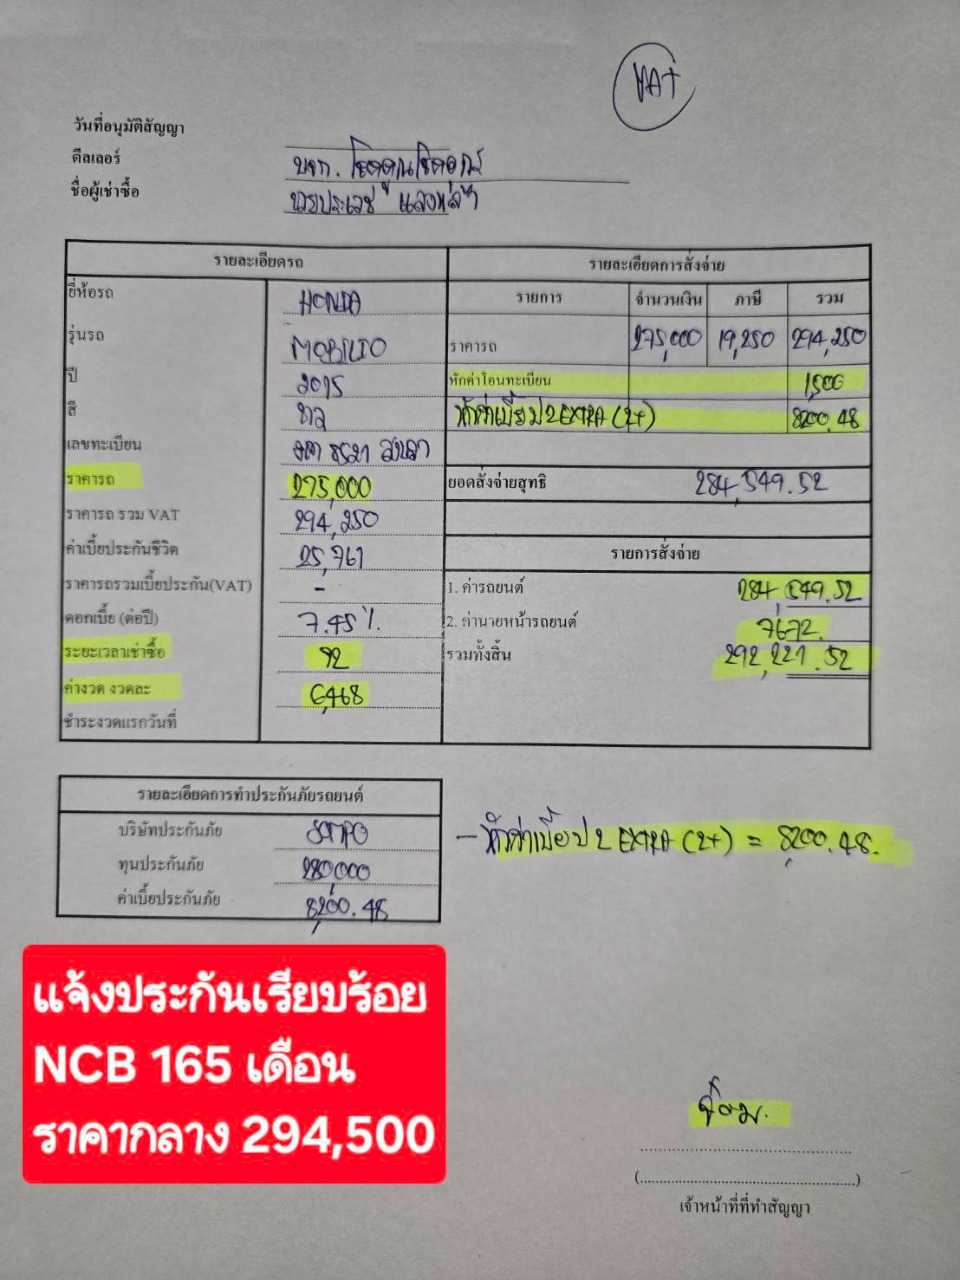 VAT
วันที่อนุมัติสัญญา
ดีลเลอร์ บจก. โชคคูณโชคอุดร
ชื่อผู้เช่าซื้อ
รายละเอียดรถ
ยี่ห้อรถ HONDA
รุ่นรถ MOBILIO
ปี 2015
สี
เลขทะเบียน
ราคารถ 275,000
ราคารถ รวม VAT 294,250
ค่าเบี้ยประกันชีวิต 25,761
ราคารถรวมเบี้ยประกัน(VAT) -
ดอกเบี้ย (ต่อปี) 7.45%
ระยะเวลาเช่าซื้อ
ค่างวด งวดละ 6,468
ชำระงวดแรกวันที่
รายละเอียดการสั่งจ่าย
รายการ จำนวนเงิน ภาษี รวม
ราคารถ 275,000 19,250 294,250
หักค่าโอนทะเบียน 1,500
หักค่าเบี้ย ป2 EXTRA (2+) 8200.48
ยอดสั่งจ่ายสุทธิ 284,549.52
รายการสั่งจ่าย
1. ค่ารถยนต์ 284,549.52
2. ค่านายหน้ารถยนต์ 7672.
รวมทั้งสิ้น 292,221.52
รายละเอียดการทำประกันภัยรถยนต์
บริษัทประกันภัย SOMPO
ทุนประกันภัย 280,000
ค่าเบี้ยประกันภัย 8,200.48
- หักค่าเบี้ย ป2 EXTRA (2+) = 8,200.48.
แจ้งประกันเรียบร้อย
NCB 165 เดือน
ราคากลาง 294,500
(..........)
เจ้าหน้าที่ที่ทำสัญญา